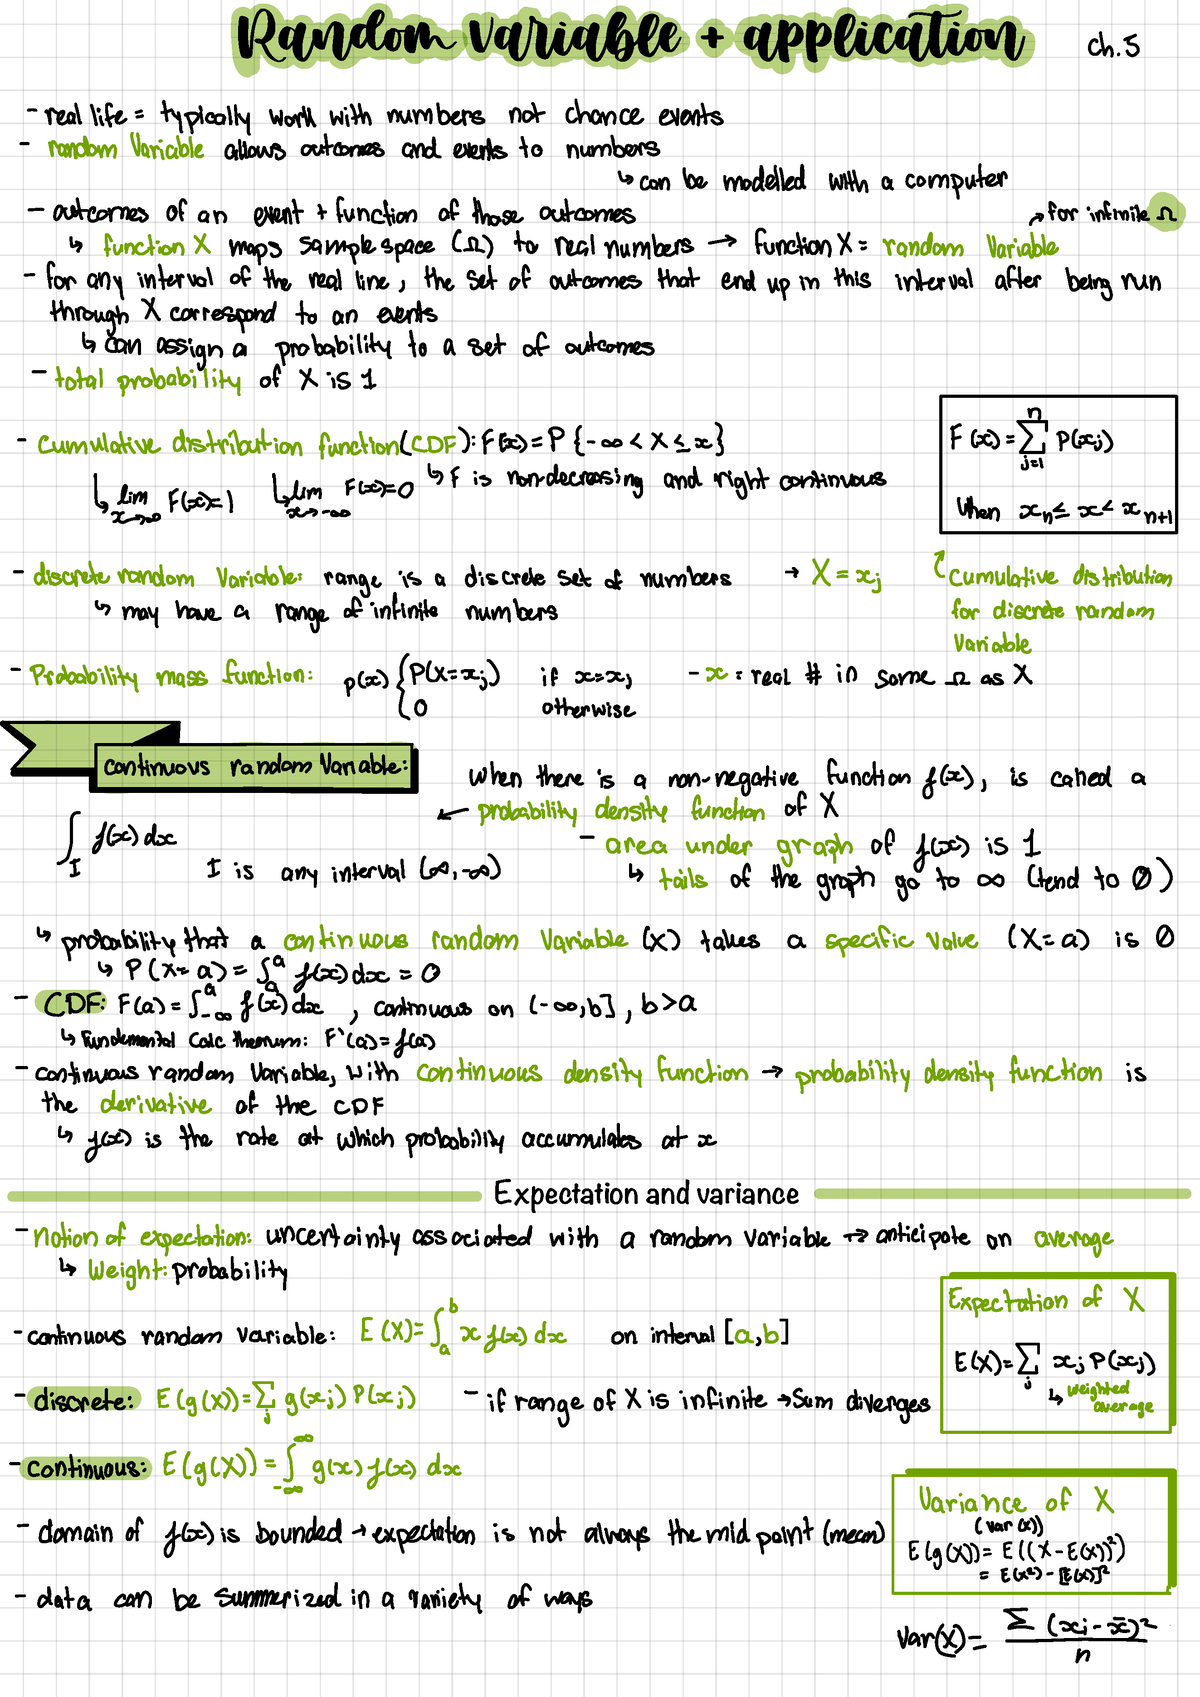 Random Variable + application ch.5
- real life = typically work with numbers not chance events
- random Variable allows outcomes and events to numbers
↳ can be modelled with a computer
- outcomes of an event + function of those outcomes
↗ for infinite Ω
↳ function X maps sample space (Ω) to real numbers → function X = random Variable
- for any interval of the real line, the set of outcomes that end up in this interval after being run
through X correspond to an events
↳ can assign a probability to a set of outcomes
- total probability of X is 1
- Cumulative distribution function (CDF): F(x) = P {-∞ < X ≤ x}
↳ F is non-decreasing and right continuous
↳ lim x→∞ F(x)=1 ↳ lim x→-∞ F(x)=0
F(x) = Σ_{j=1}^{n} P(x_j)
When x_n ≤ x < x_{n+1}
- discrete random Variable: range is a discrete set of numbers → X = x_j
↳ may have a range of infinite numbers
Cumulative distribution
for discrete random
Variable
- Probability mass function: p(x) { P(X=x_j) if x=x_j
0 otherwise
- x = real # in same Ω as X
Continuous random Variable:
When there is a non-negative function f(x), is called a
← probability density function of X
∫_I f(x) dx
I is any interval (∞,-∞)
- area under graph of f(x) is 1
↳ tails of the graph go to ∞ (tend to 0)
↳ probability that a continuous random Variable (x) takes a specific value (X=a) is 0
↳ P(X=a) = ∫_a^a f(x) dx = 0
- CDF: F(a) = ∫_{-∞}^a f(x) dx , continuous on (-∞,b], b>a
↳ Fundemental Calc theorum: F'(a)=f(a)
- continuous random Variable, with continuous density function → probability density function is
the derivative of the CDF
↳ f(x) is the rate at which probability accumulates at x
Expectation and variance
- notion of expectation: uncertainty associated with a random variable → anticipate on average
↳ Weight: probability
- continuous random variable: E(X) = ∫_a^b x f(x) dx on interval [a,b]
Expectation of X
E(X) = Σ_j x_j P(x_j)
↳ weighted
average
- discrete: E(g(x)) = Σ_j g(x_j) P(x_j) - if range of X is infinite → Sum diverges
- continuous: E(g(X)) = ∫_{-∞}^{∞} g(x) f(x) dx
- domain of f(x) is bounded → expectation is not always the mid point (mean)
- data can be summerized in a variety of ways
Variance of X
(var(x))
E(g(X)) = E((X-E(X))²)
= E(x²) - [E(x)]²
Var(X) = Σ(xi - x̄)² / n